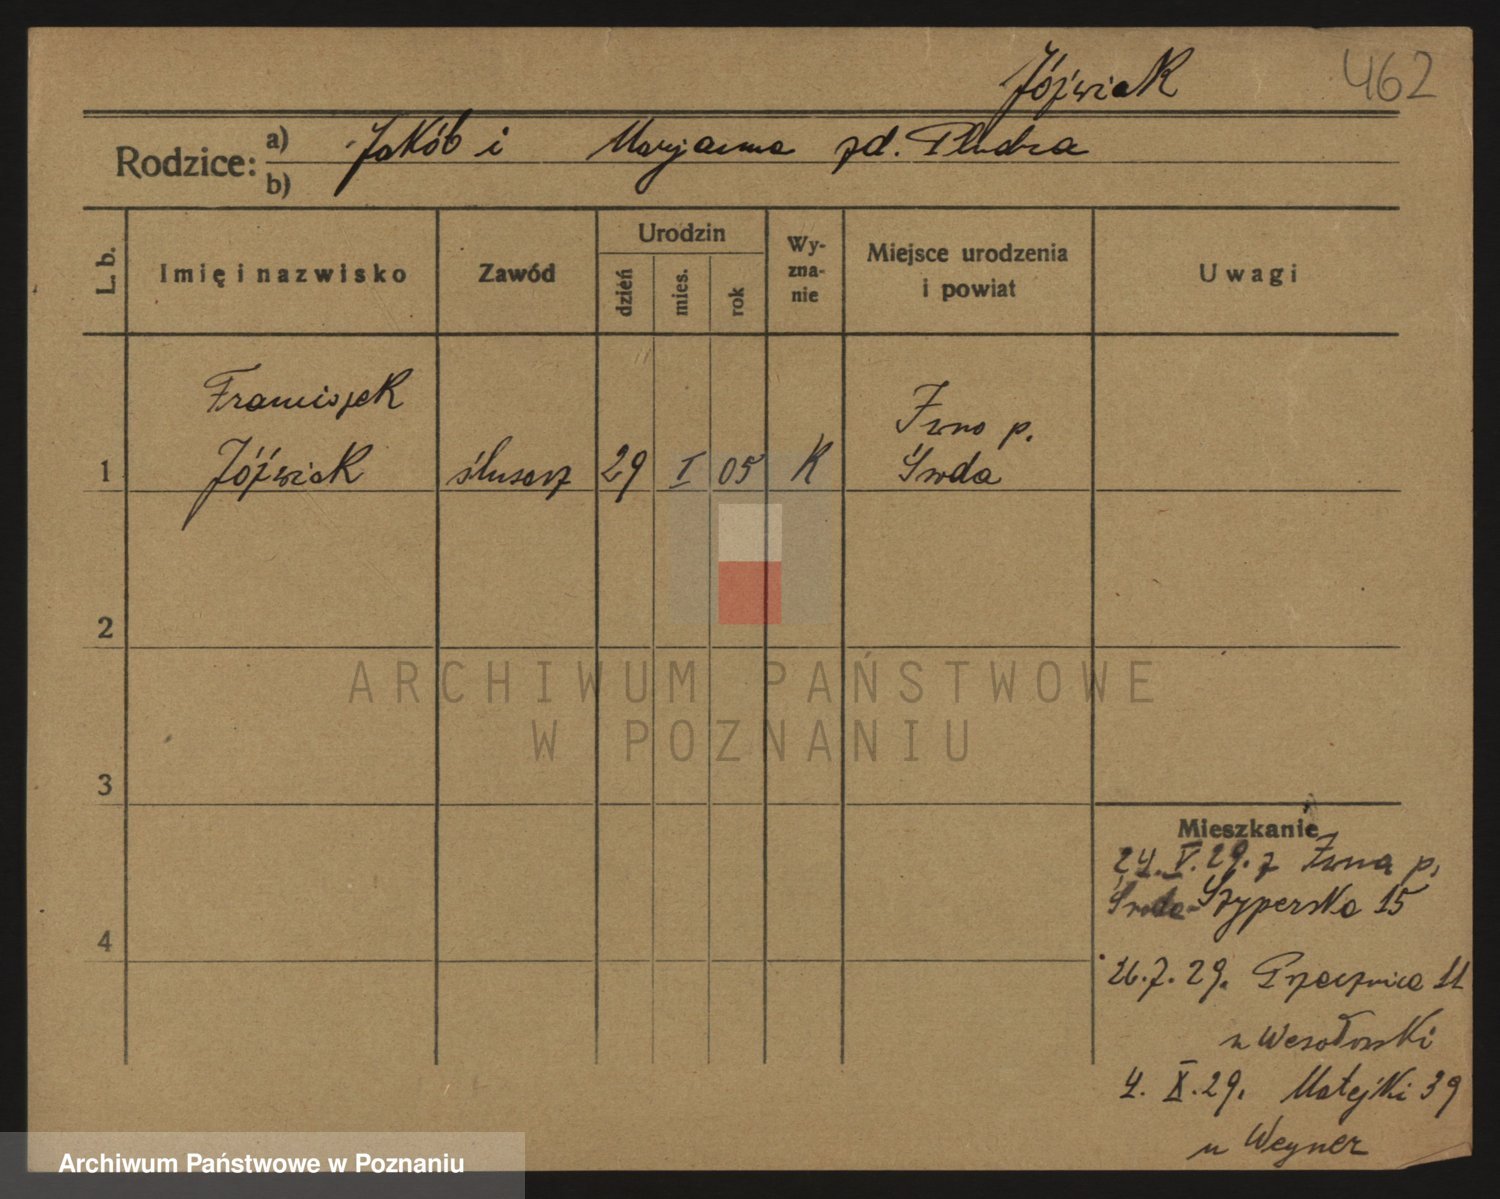 Jóźwiak 462
Rodzice: a) Jakób i Maryanna zd. Pludra
b)
L. b. Imię i nazwisko Zawód Urodzin dzień mies. rok Wyznanie Miejsce urodzenia i powiat Uwagi
Franciszek
Iwno p.
1 Jóźwiak ślusarz 29 I 05 K Środa
2
3
Mieszkanie
24. V. 29. z Iwna p.
Środa - Szyperska 15
4
26.7.29. Przecznica 11
u Wesołowski
4. X. 29. Matejki 39
u Weyner
ARCHIWUM PAŃSTWOWE
W POZNANIU
Archiwum Państwowe w Poznaniu